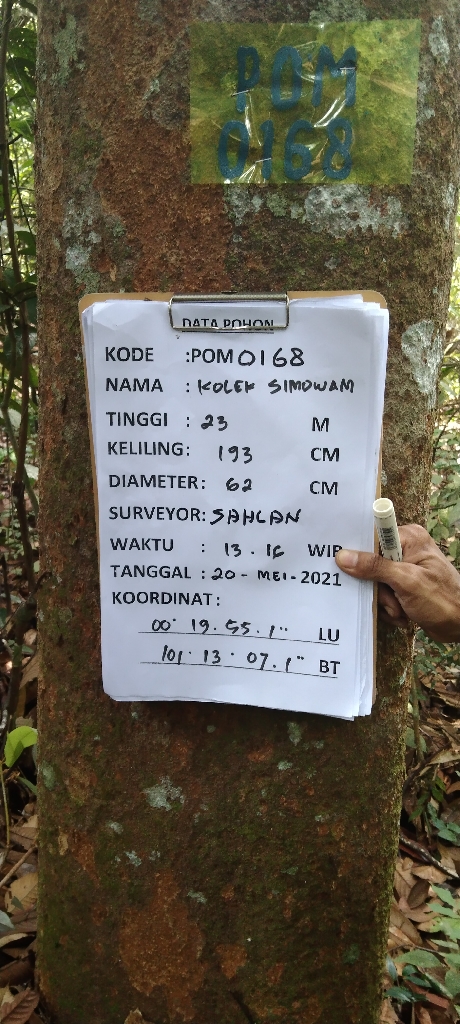 POM
0168
DATA POHON
KODE :POM0168
NAMA : KOLEK SIMOWAM
TINGGI : 23 M
KELILING: 193 CM
DIAMETER: 62 CM
SURVEYOR: SAHLAN
WAKTU : 13.16 WIB
TANGGAL : 20 - MEI - 2021
KOORDINAT :
00° 19. 55. 1" LU
101° 13' 07. 1" BT